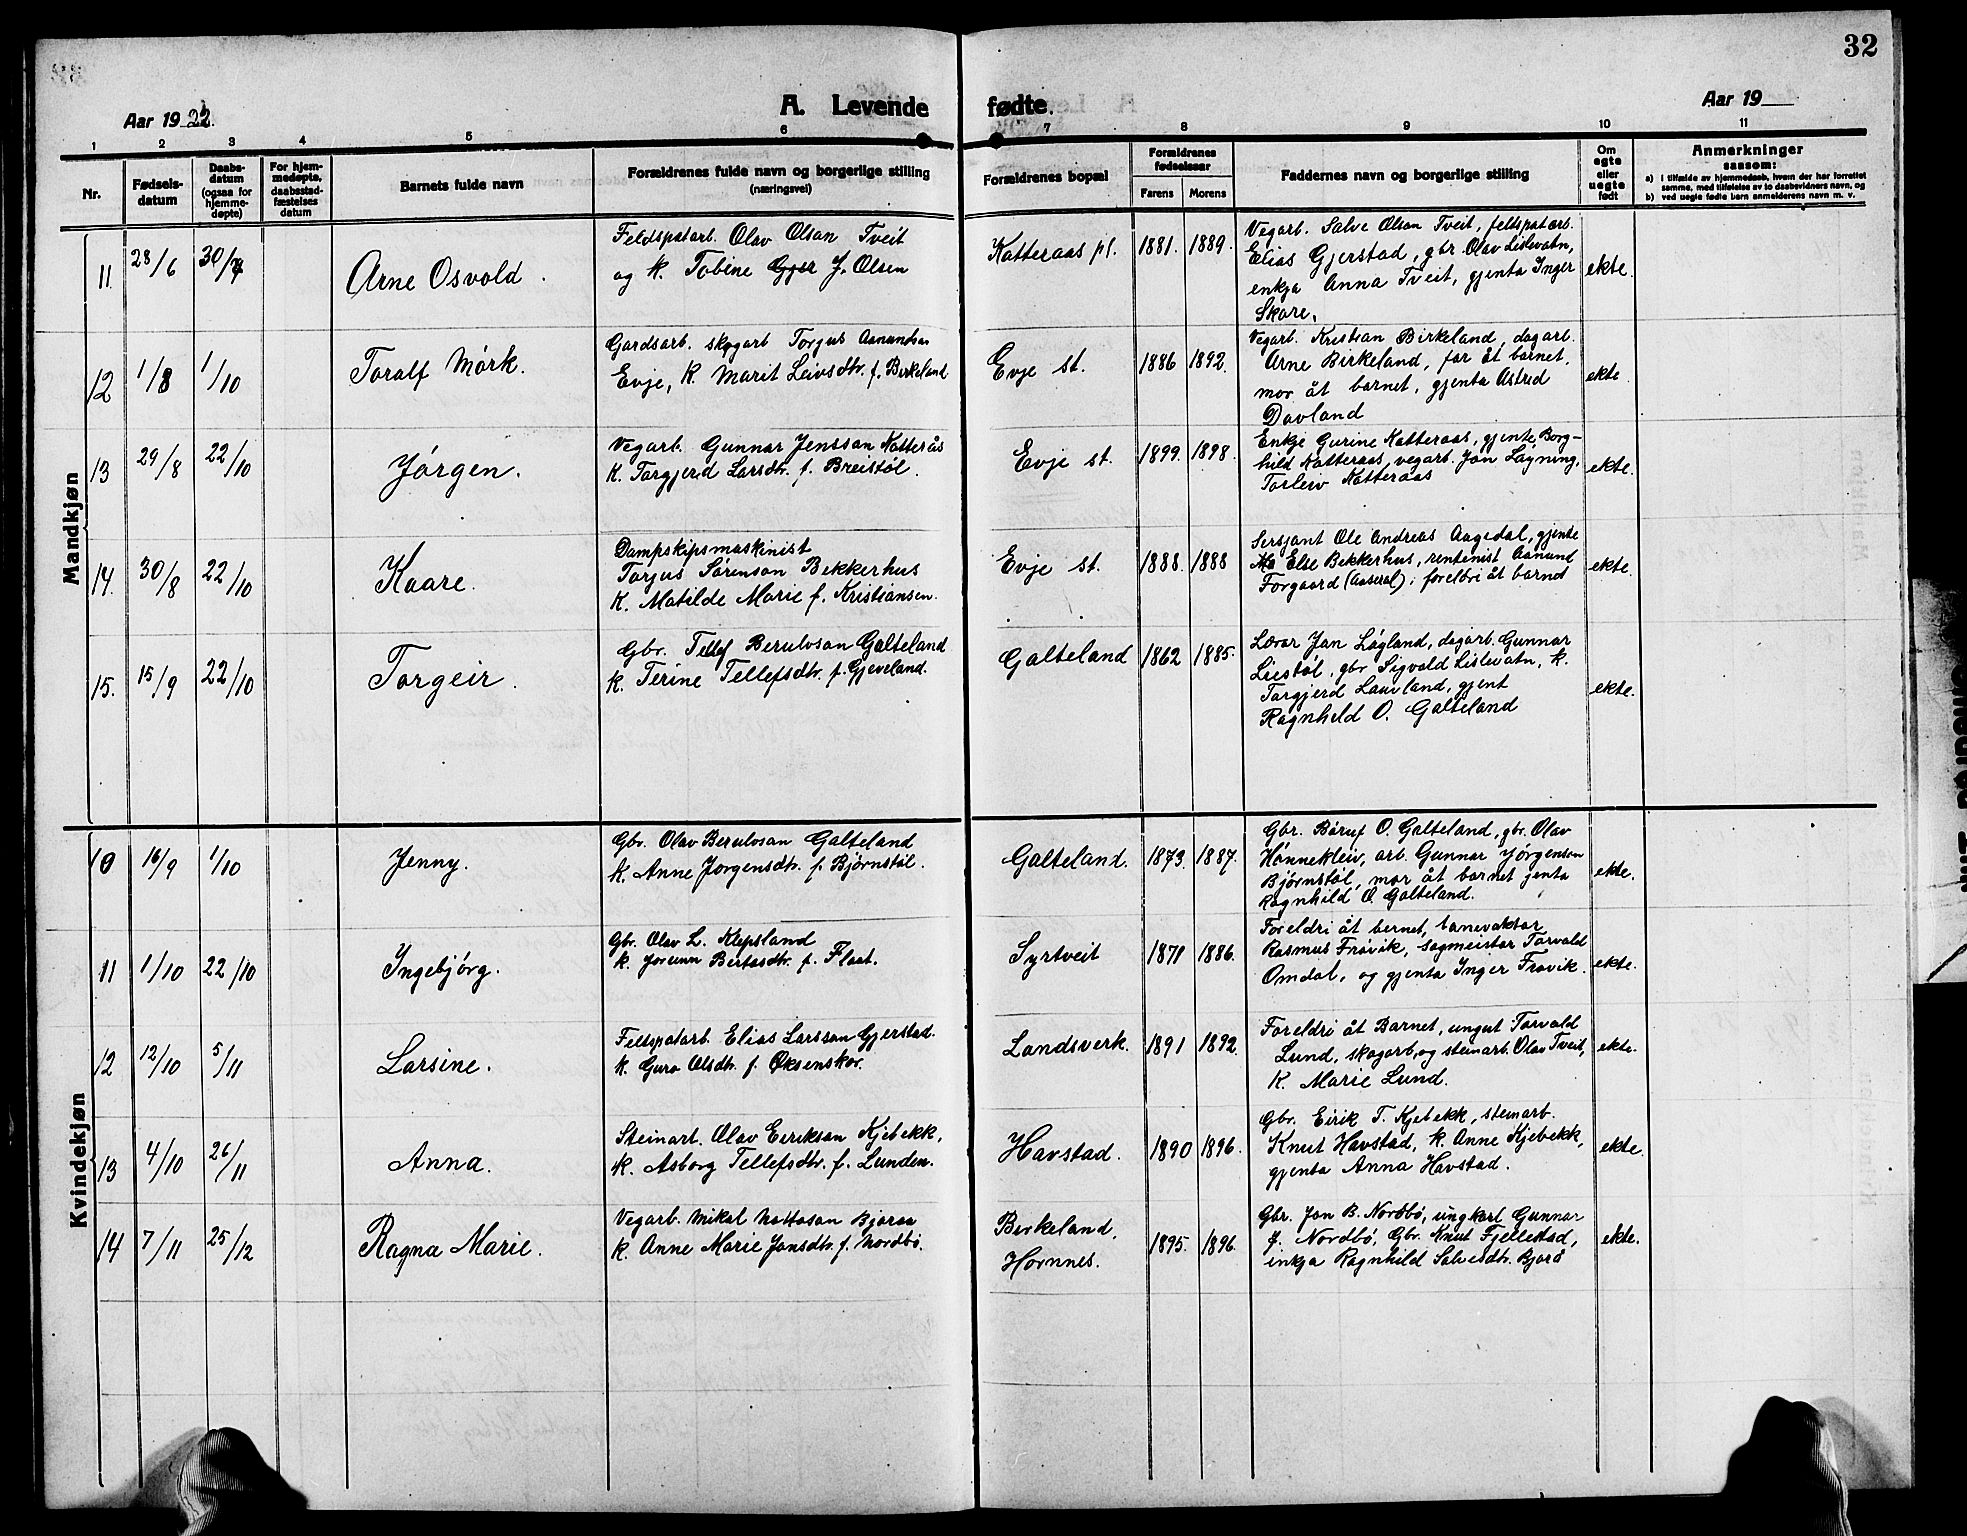 32
Aar 1922.
A. Levende fødte.
Aar 19
1 2 3 4 5 6 7 8 9 10 11
Nr.
Fødsels-
datum
Daabs-
datum
(ogsaa for
hjemme-
døpte)
For hjem-
medøpte,
daabsstad-
fæstelses
datum
Barnets fulde navn
Forældrenes fulde navn og borgerlige stilling
(næringsvei)
Forældrenes bopæl
Forældrenes
fødselsaar
Farens Morens
Faddernes navn og borgerlige stilling
Om
egte
eller
uegte
født
Anmerkninger
saasom:
a) i tilfælde av hjemmedaab, hvem der har forrettet
samme, med tilføielse av to daabsvidners navn, og
b) ved uegte fødte barn anmelderens navn m. v.
Mandkjøn
11. 28/6 30/7 Arne Osvold.
Feldspatarb. Olav Olsan Tveit
og k. Tobine J. Olsen
Katteraas pl. 1881. 1889.
Vegarb. Salve Olson Tveit, feltspatarb.
Elias Gjerstad, gbr Olav Lislevatn,
enkja Anna Tveit, gjenta Inger
Skare.
ekte.
12 1/8 1/10 Toralf Mörk.
Gardsarb. skogarb Torgus Aanundsan
Evje, k. Marit Leivsdtr. f. Birkeland
Evje st. 1886 1892.
Vegarb. Kristian Birkeland, dagarb.
Arne Birkeland, far åt barnet,
mor åt barnet, gjenta Astred
Davland
ekte
13 29/8 22/10 Jörgen.
Vegarb. Gunnar Jenssan Katterås
k. Targjerd Larsdtr. f. Breistöl.
Evje st. 1899. 1898.
Enkje Gurine Katteraas, gjente Borg-
hild Katteraas, vegarb. Jon Läyning,
Torleiv Katteraas
ekte.
14. 30/8 22/10 Kaare.
Dampskipsmaskinist
Torjus Sörenson Bekkerhus
k. Matilde Marie f. Kristiansen.
Evje st. 1888. 1888
Sersjant Ole Andreas Aagedal, gjente
Else Bekkerhus, rentenist Aanund
Forgaard (Aaseral); foreldri åt barnet
ekte.
15. 15/9 22/10 Torgeir.
Gbr. Tellef Berulvsan Galteland
k. Terine Tellefsdtr. f. Gjeveland.
Galteland 1862 1885.
Lærar Jon Lögland, dagarb. Gunnar
Liestöl, gbr Sigvald Lislevatn, k.
Targjerd Lauvland, gjent
Ragnheld O. Galteland
ekte.
Kvindekjøn
10 16/9 1/10 Jenny.
Gbr. Olav Berulvsan Galteland
k. Anne Jorgensdtr. f. Bjørnstöl.
Galteland. 1873. 1887.
Gbr. Böruf O. Galteland, gbr. Olav
Hönnekleiv, arb. Gunnar Jörgenson
Björnstöl, mor åt barnet jenta
Ragnhild O. Galteland.
ekte.
11 1/10 22/10 Ingebjörg.
Gbr. Olav L. Klepsland
k. Jorunn Bertosdtr. f. Flaat.
Syrtveit 1871 1886.
Foreldri åt bernet, banevaktar
Rasmus Frövik, sagmeistar Torvald
Omdal, og gjenta Inger Frövik.
ekte.
12 12/10 5/11 Larsine.
Feltspatarb. Elias Larssan Gjerstad.
k. Guro Olsdtr. f. Øksenskor.
Landsverk. 1891 1892.
Foreldri åt Barnet, ungut Torvald
Lund, skogarb, og steinarb. Olav Tveit,
k. Marie Lund.
ekte.
13 4/10 26/11 Anna.
Steinarb. Olav Eiriksan Kjebekk,
k. Asborg Tellefsdtr. f. Lunden.
Havstad. 1890 1896.
Gbr. Eirik T. Kjebekk, steinarb.
Knut Havstad, k. Anne Kjebekk,
gjenta Anna Havstad.
ekte.
14 7/11 25/12 Ragna Marie.
Vegarb. Mikal Nottosan Bjoraa
k. Anne Marie Jonsdtr. f. Nordbö.
Berkeland.
Hornnes.
1895. 1896.
Gbr. Jon B. Nordbö, ungkarl Gunnar
J. Nordbö, Gbr. Knut Fjellestad,
inkja Ragnhild Salvesdtr. Bjorå
ekte.